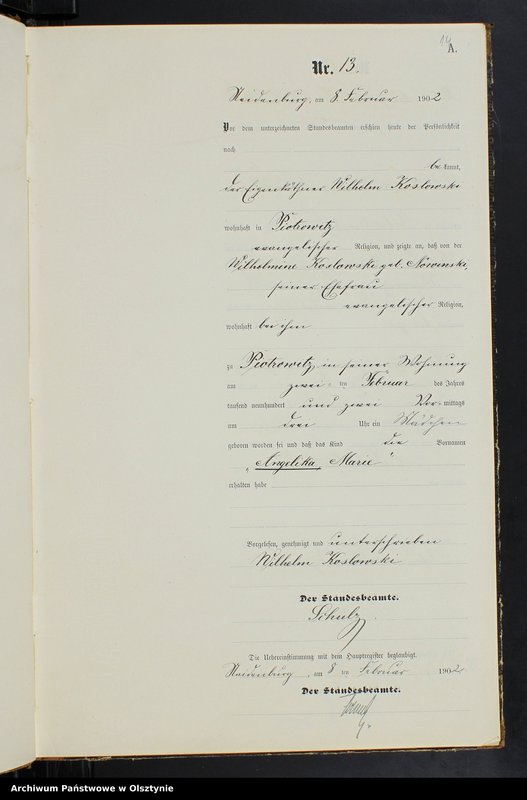 14
A.
Nr. 13.
Neidenburg, am 8. Februar 1902
Vor dem unterzeichneten Standesbeamten erschien heute der Persönlichkeit
nach
be kannt,
der Eigenkäthner Wilhelm Koslowski
wohnhaft in Piotrowitz
evangelischer Religion, und zeigte an, daß von der
Wilhelmine Koslowski geb. Nowinski,
seiner Ehefrau
evangelischer Religion,
wohnhaft bei ihm
zu Piotrowitz, in seiner Wohnung
am zwei ten Februar des Jahres
tausend neunhundert und zwei Vor mittags
um drei Uhr ein Mädchen
geboren worden sei und daß das Kind die Vornamen
"Angelika, Marie"
erhalten habe
Vorgelesen, genehmigt und unterschrieben
Wilhelm Koslowski
Der Standesbeamte.
Schulz.
Die Uebereinstimmung mit dem Hauptregister beglaubigt.
Neidenburg, am 8 ten Februar 1902
Der Standesbeamte.
Archiwum Państwowe w Olsztynie